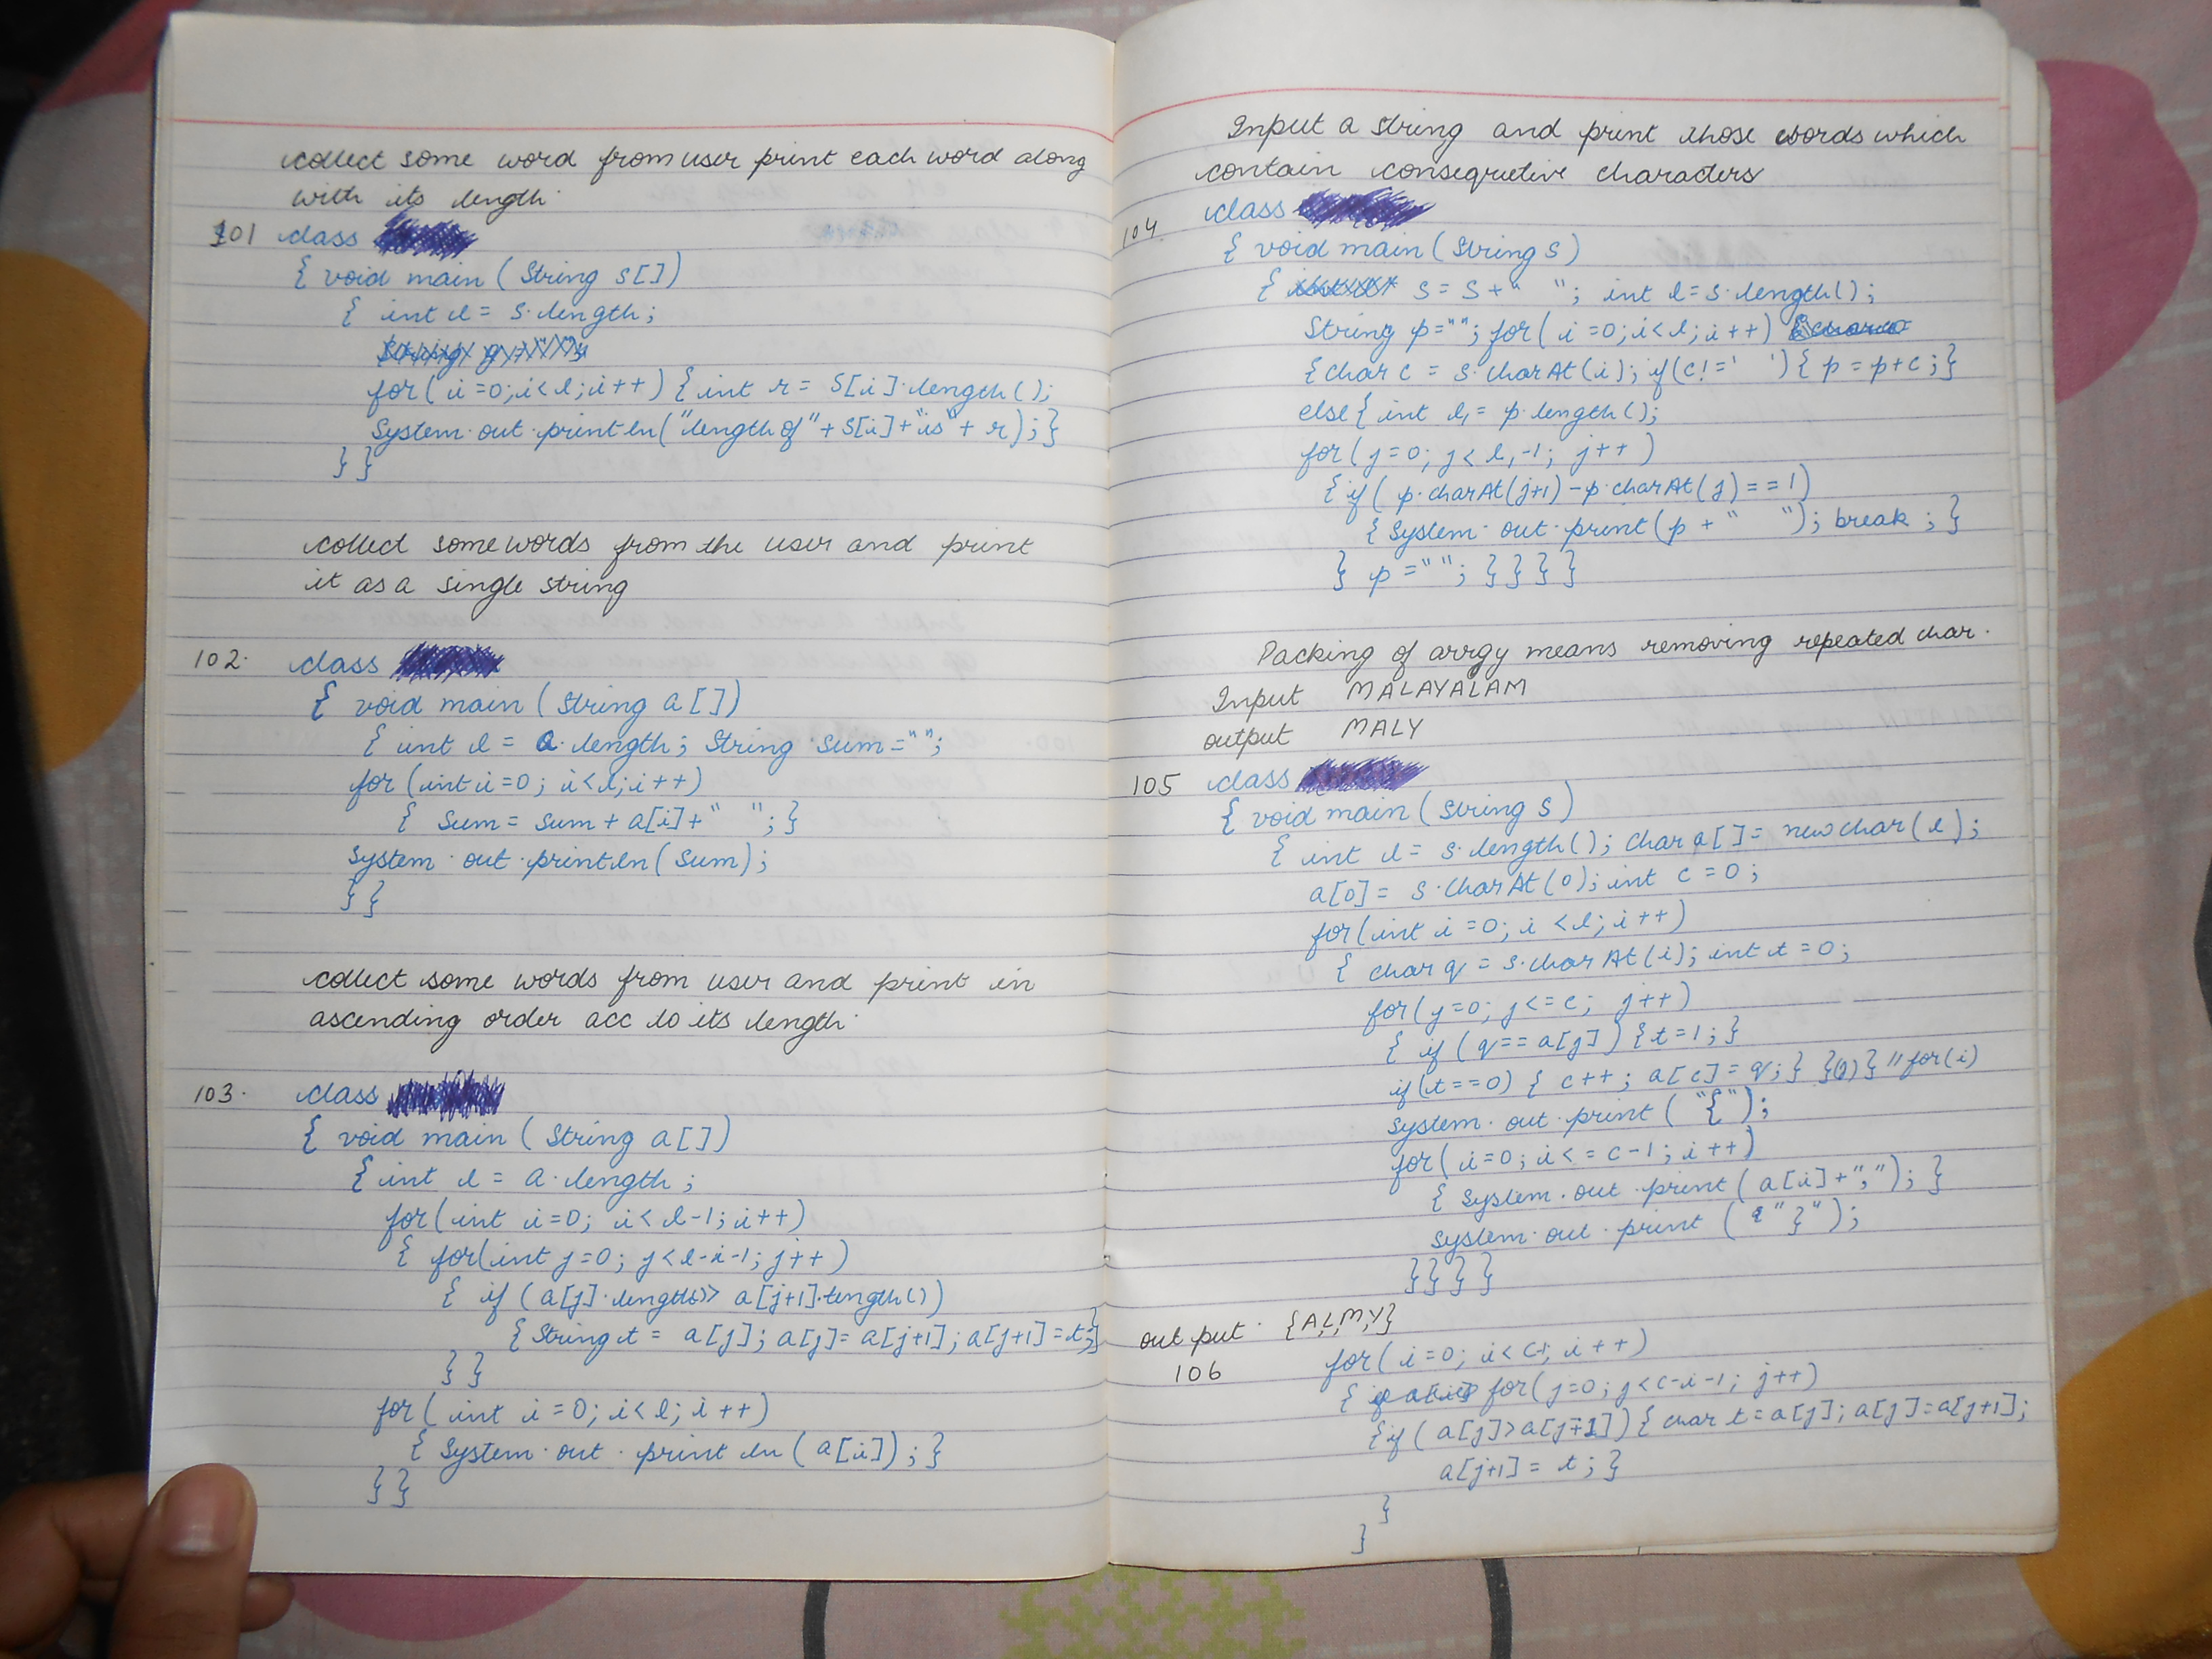 collect some word from user print each word along
with its length.
101 class
{ void main ( String s[])
{ int l = s.length;
for( i=0;i<l;i++) { int r = s[i].length();
System.out.println("length of"+s[i]+"is"+r);}
}}
collect some words from the user and print
it as a single string
102. class
{ void main ( String a[])
{ int l = a.length; String sum="";
for (int i=0; i<l;i++)
{ sum = sum + a[i]+" ";}
System.out.println(sum);
}}
collect some words from user and print in
ascending order acc to its length.
103. class
{ void main ( String a[])
{ int l = a.length;
for(int i=0; i<l-1;i++)
{ for(int j=0; j<l-i-1; j++)
{ if (a[j].length()> a[j+1].length())
{ String t = a[j]; a[j]= a[j+1]; a[j+1]=t;}
}}
for( int i=0; i<l; i++)
{ System.out.println (a[i]);}
}}
Input a string and print those words which
contain consequetive characters
104. class
{ void main (String s)
{ s = s+" "; int l=s.length();
String p=""; for( i=0;i<l;i++)
{char c = s.charAt(i); if(c!=' '){ p=p+c;}
else{ int l1= p.length();
for(j=0; j<l1-1; j++)
{if( p.charAt(j+1)-p.charAt(j)==1)
{ System.out.print(p+" "); break;}
} p=""; }}}}
Packing of arrgy means removing repeated char.
Input MALAYALAM
output MALY
105 class
{ void main (String s)
{ int l= s.length(); char a[]= new char(l);
a[0]= s.charAt(0); int c=0;
for(int i=0; i<l; i++)
{ char q = s.charAt(i); int t=0;
for(j=0; j<=c; j++)
{ if (q==a[j]) {t=1;}
if(t==0) { c++; a[c]=q;} } } //for(i)
System.out.print ("{");
for(i=0; i<=c-1; i++)
{ System.out.print (a[i]+","); }
System.out.print ("}");
}}}}
output. {A,L,M,Y}
106 for( i=0; i<c; i++)
{ for(j=0; j<c-i-1; j++)
{if( a[j]>a[j+1]) { char t=a[j]; a[j]=a[j+1];
a[j+1]= t;}
}
}